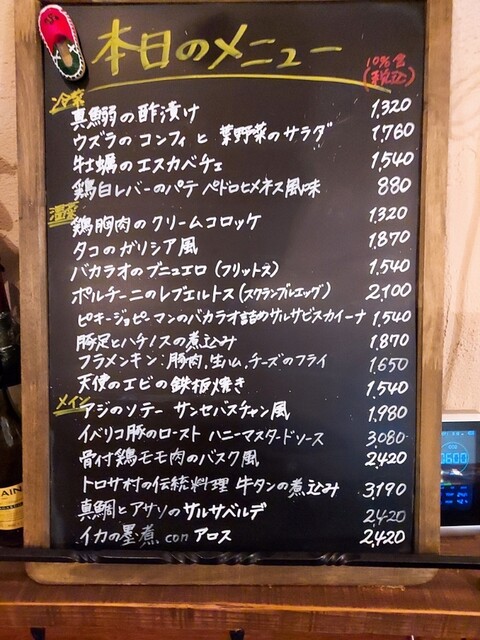 本日のメニュー
10%含
(税込)
冷菜
真鰯の酢漬け 1,320
ウズラのコンフィと葉野菜のサラダ 1,760
牡蠣のエスカベチェ 1,540
鶏白レバーのパテ ペドロヒメネス風味 880
温菜
鶏胸肉のクリームコロッケ 1,320
タコのガリシア風 1,870
バカラオのブニュエロ(フリットス) 1,540
ポルチーニのレブエルトス(スクランブルエッグ) 2,100
ピキージョピーマンのバカラオ詰めサルサビスカイーナ 1,540
豚足とハチノスの煮込み 1,870
フラメンキン:豚肉,生ハム,チーズのフライ 1,650
天使のエビの鉄板焼き 1,540
メイン
アジのソテー サンセバスチャン風 1,980
イベリコ豚のロースト ハニーマスタードソース 3,080
骨付鶏モモ肉のバスク風 2,420
トロサ村の伝統料理 牛タンの煮込み 3,190
真鯛とアサリのサルサベルデ 2,420
イカの墨煮 con アロス 2,420